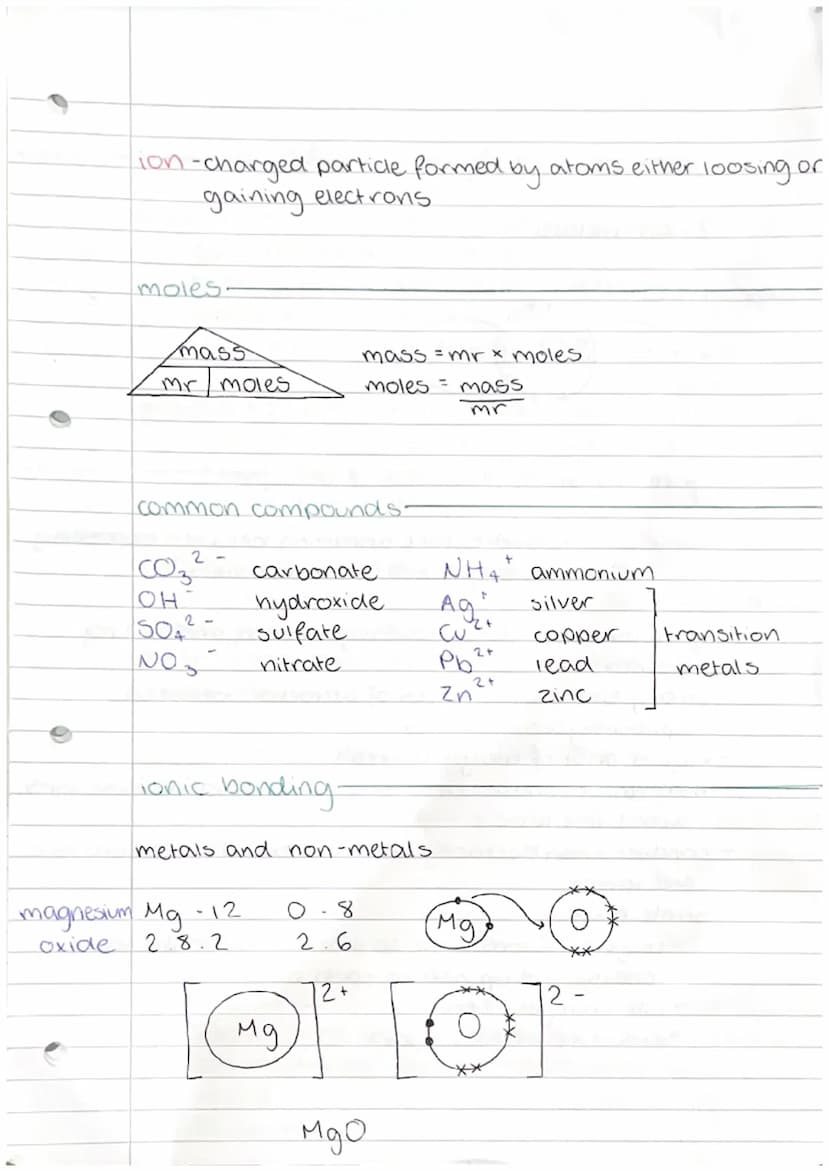 ion - charged particle formed by atoms either loosing or
gaining electrons
moles
mass
mr moles
mass = mr × moles
moles = mass
mr
common compounds
CO₃²⁻ carbonate NH₄⁺ ammonium
OH⁻ hydroxide Ag⁺ silver
SO₄²⁻ sulfate Cu²⁺ copper transition
NO₃⁻ nitrate Pb²⁺ lead metals
Zn²⁺ zinc
ionic bonding
metals and non-metals
magnesium Mg - 12 O - 8 Mg O
oxide 2.8.2 2.6
Mg 2+ O 2-
MgO